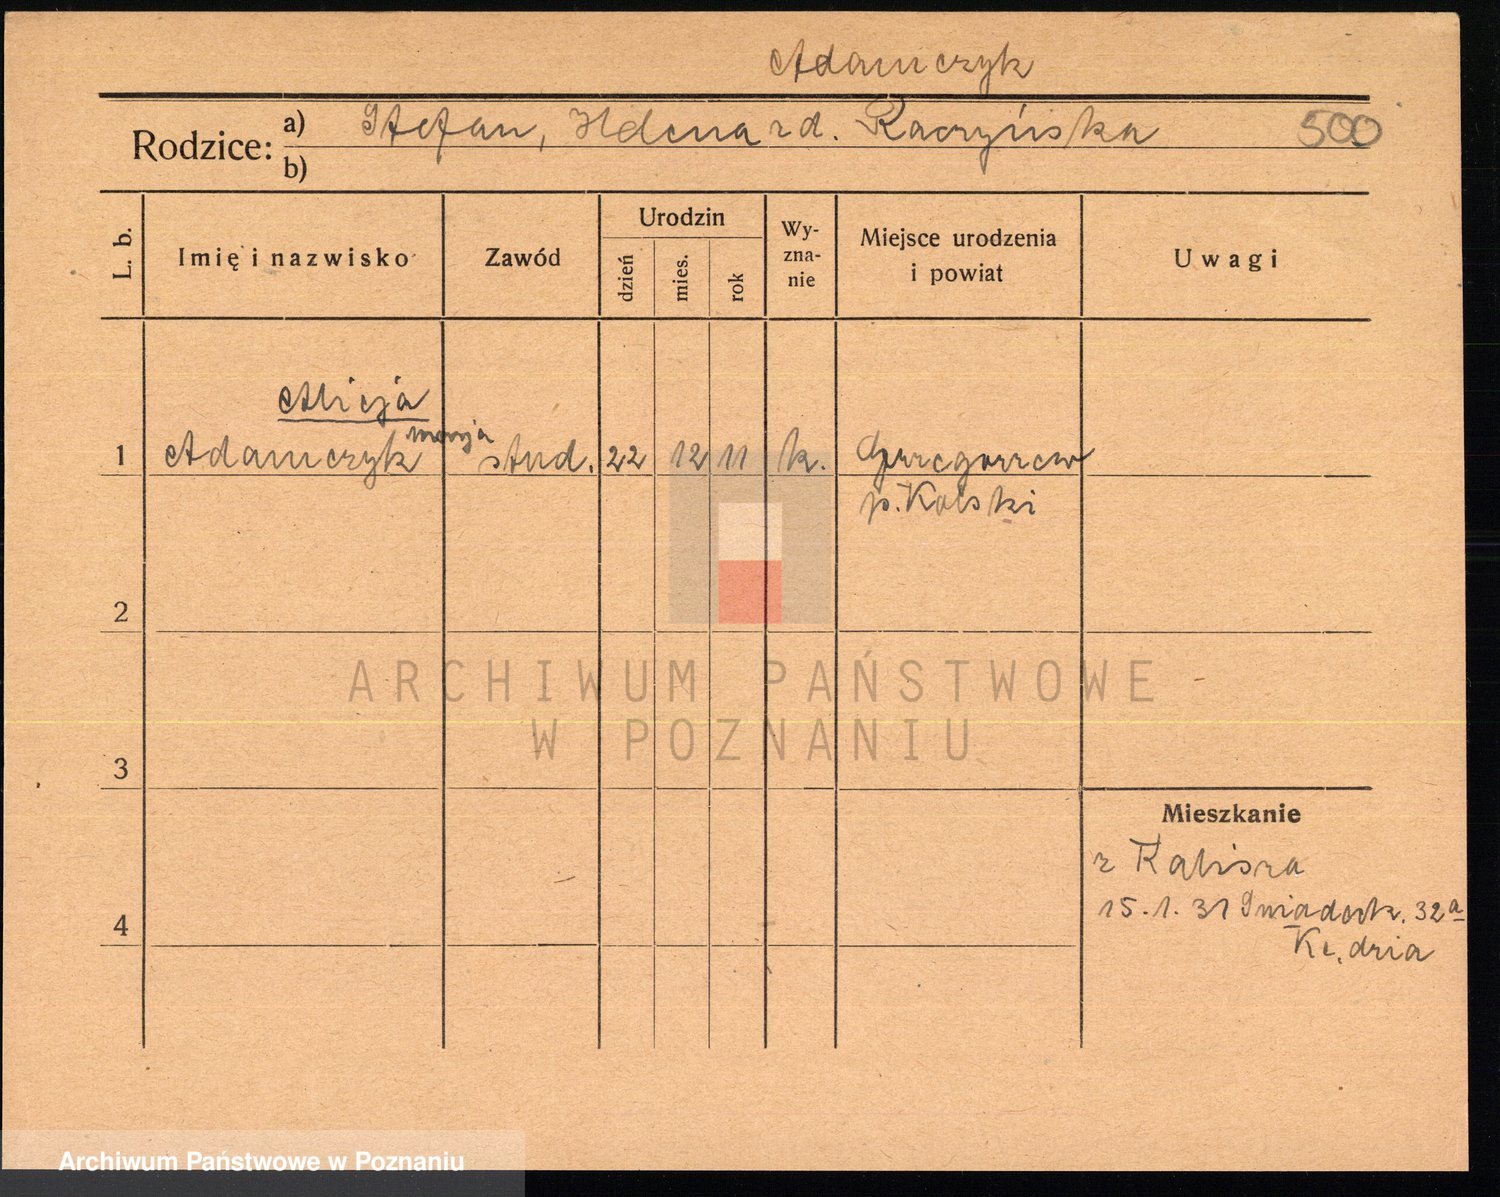 Adamczyk
Rodzice: a) Stefan, Helena zd. Raczyńska 500
b)
L. b. Imię i nazwisko Zawód Urodzin dzień mies. rok Wy-zna-nie Miejsce urodzenia i powiat Uwagi
Alicja
marja
1 Adamczyk stud. 22 12 11 k. Grzegorzew
p. Kolski
2
3
4
Mieszkanie
z Kalisza
15.1.31 32a
ARCHIWUM PAŃSTWOWE
W POZNANIU
Archiwum Państwowe w Poznaniu